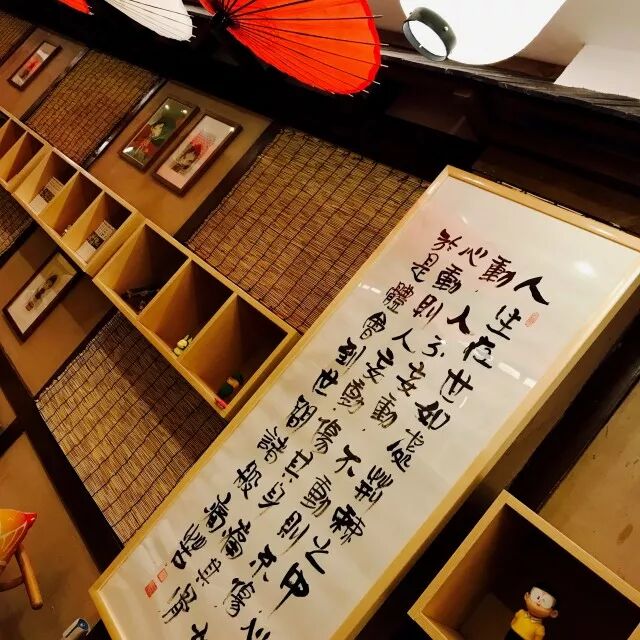 人生在世如處荊棘之中
動人不妄動不動則不傷
心動則人妄動傷其身痛其骨
於是體會到世間諸般痛苦